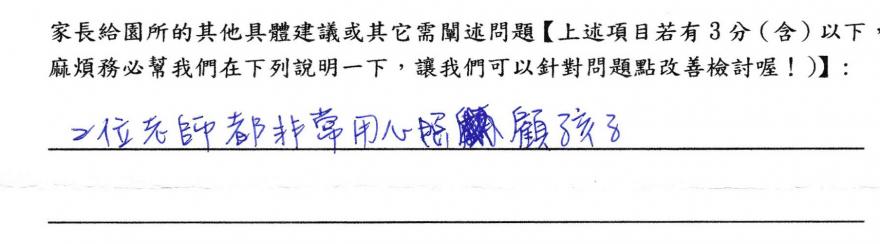 家長給園所的其他具體建議或其它需闡述問題【上述項目若有3分(含)以下，
麻煩務必幫我們在下列說明一下，讓我們可以針對問題點改善檢討喔！)】：
2位老師都非常用心照顧孩子